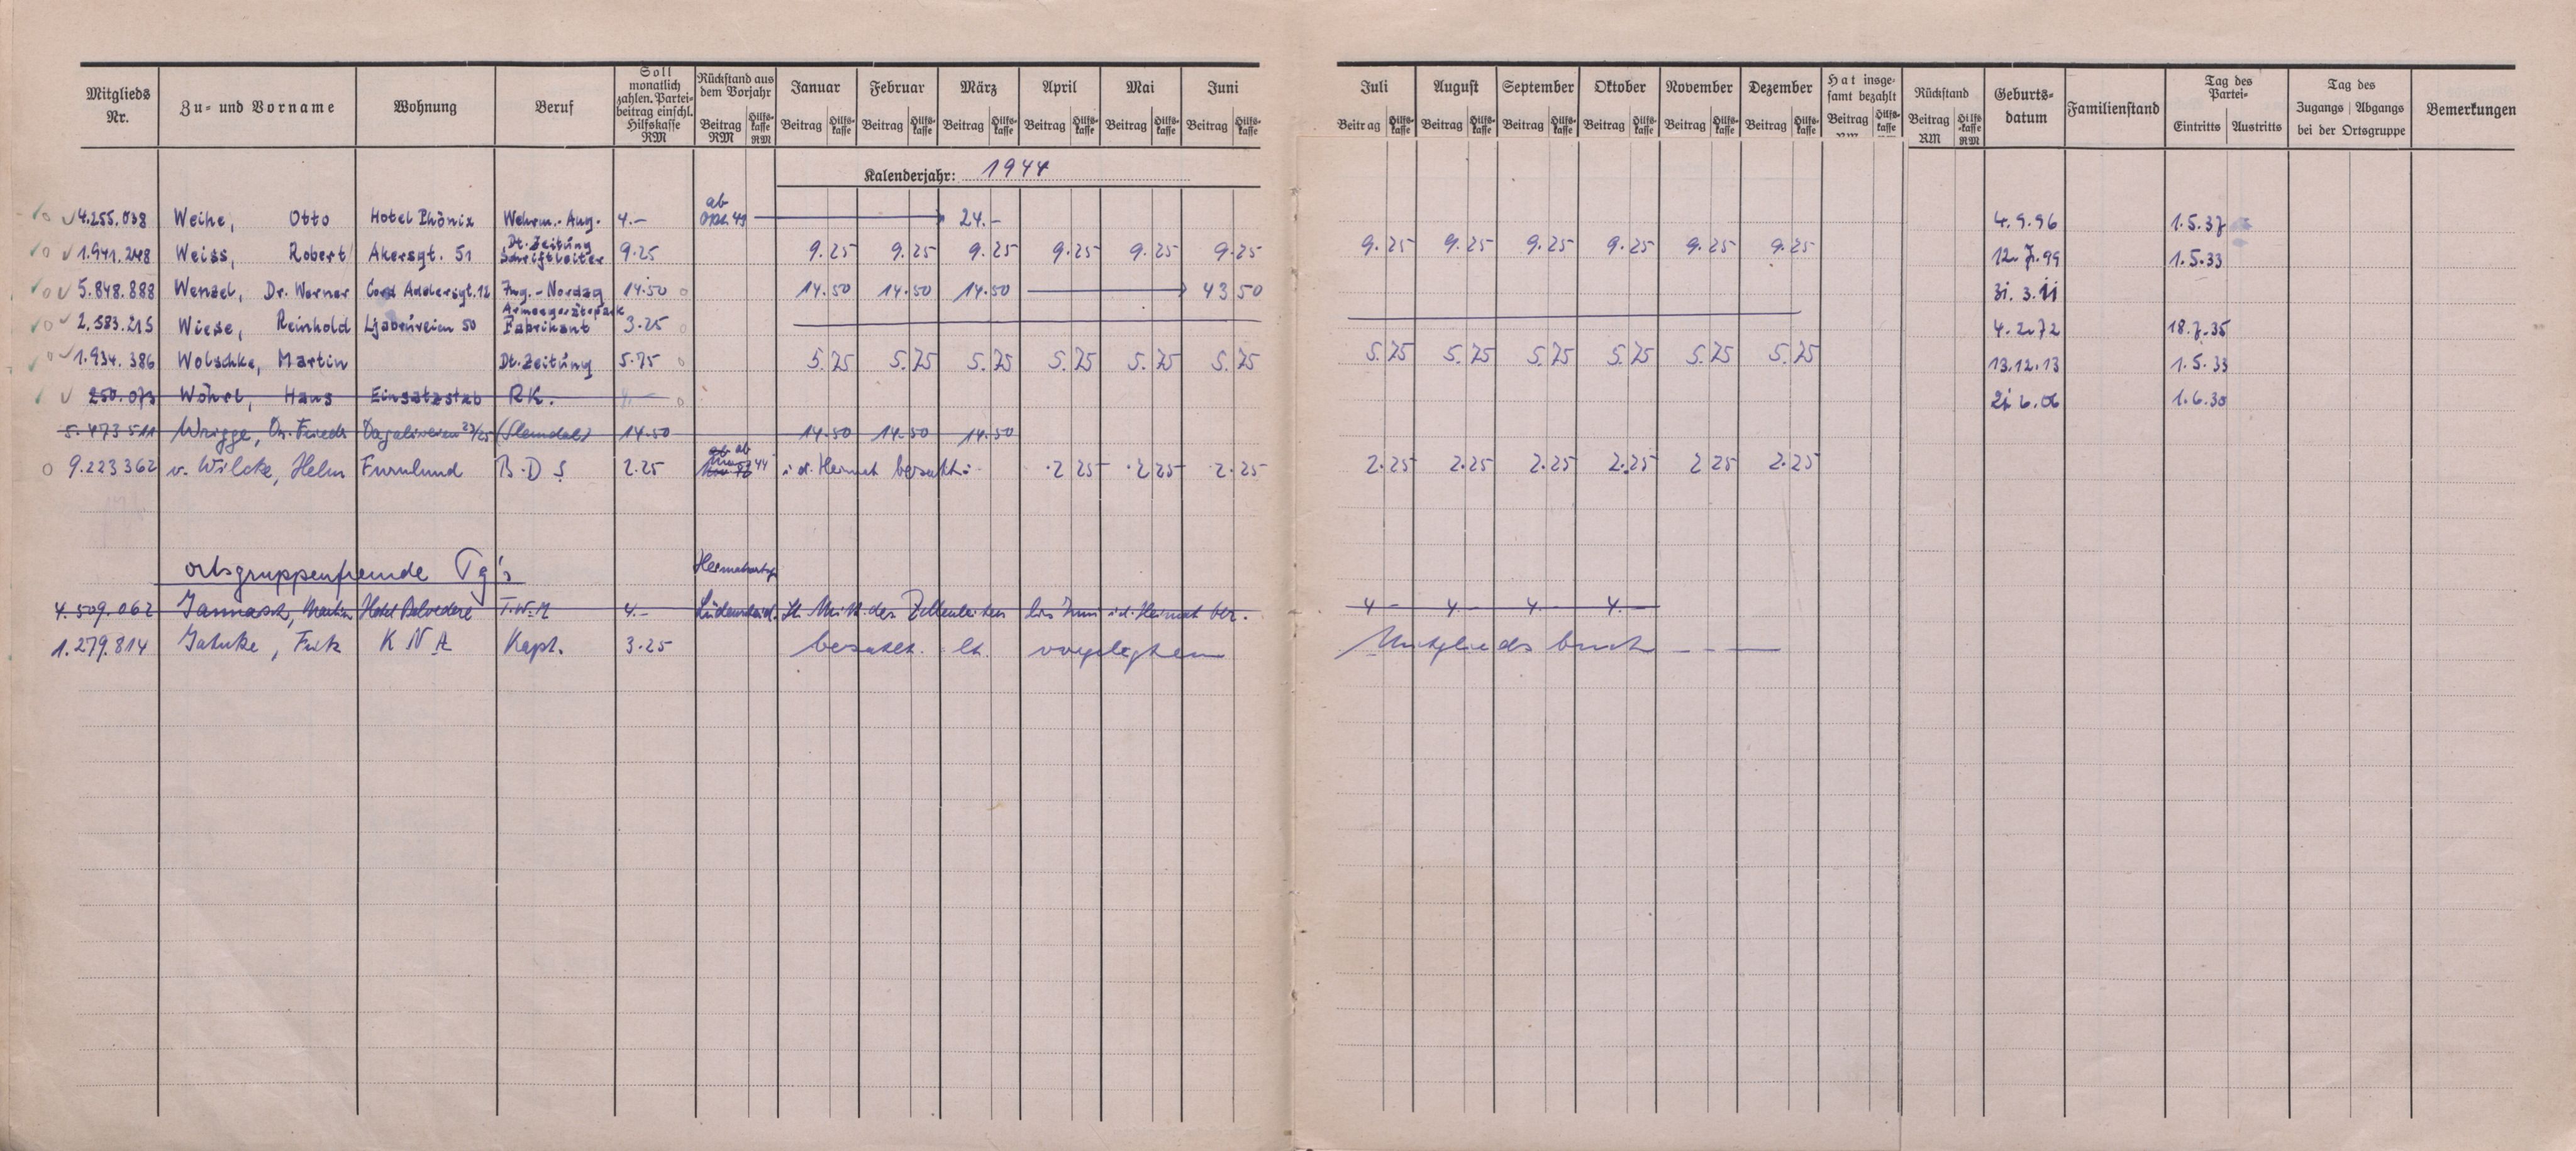 Mitglieds Nr. Zu- und Vorname Wohnung Beruf Soll monatlich zahlen. Partei-beitrag einschl. Hilfskasse RM Rückstand aus dem Vorjahr Januar Februar März April Mai Juni Juli August September Oktober November Dezember Hat insge-samt bezahlt Rückstand Geburts-datum Familienstand Tag des Partei- Tag des Bemerkungen
Beitrag RM Hilfs-kasse RM Beitrag Hilfs-kasse Beitrag Hilfs-kasse Beitrag Hilfs-kasse Beitrag Hilfs-kasse Beitrag Hilfs-kasse Beitrag Hilfs-kasse Beitrag Hilfs-kasse Beitrag Hilfs-kasse Beitrag Hilfs-kasse Beitrag Hilfs-kasse Beitrag Hilfs-kasse Beitrag Hilfs-kasse Beitrag Hilfs-kasse Beitrag RM Hilfs-kasse RM Eintritts Austritts Zugangs Abgangs bei der Ortsgruppe
Kalenderjahr: 1944
4.255.038 Weihe, Otto Hotel Phönix Wehrm.-Ang. 4.- ab 24.- 4.9.96 1.5.37
1.941.248 Weiss, Robert Akersgt. 51 Dt. Zeitung Schriftleiter 9.25 9.25 9.25 9.25 9.25 9.25 9.25 9.25 9.25 9.25 9.25 9.25 9.25 12.7.99 1.5.33
5.848.888 Wenzel, Dr. Werner Cord Addersgt. 12 Ing.-Nordag 14.50 14.50 14.50 14.50 43 50 31.3.11
2.583.215 Wiese, Reinhold Ljabruveien 50 Fabrikant 3.25 4.2.72 18.7.35
1.934.386 Wolschke, Martin Dt. Zeitung 5.75 5.75 5.75 5.75 5.75 5.75 5.75 5.75 5.75 5.75 5.75 5.75 5.75 13.12.13 1.5.33
250.073 Wöhrl, Hans Einsatzstab RK. 21 6.06 1.6.30
5.473 511 Wrigge, Dr. Friedr (Slemdal) 14.50 14.50 14.50 14.50
9.223362 v. Wilcke, Helm Furulund B.D.S 2.25 ab 44 i.d. Heimat bezahlt. 2 25 2 25 2.25 2.25 2.25 2.25 2.25 2 25 2.25
ortsgruppenfremde Pg's
4.509.062 Jannasch, Martin Hotel Belvedere 4.- Lüdenscheid. lt. Mitt. des Zellenleiters bis Juni i.d. Heimat bez. 4 - 4 - 4 - 4.-
1.279.814 Jahnke, Fritz K N A Kapt. 3.25 bezahlt. lt. vorgelegtem Mitglieds buch - - -